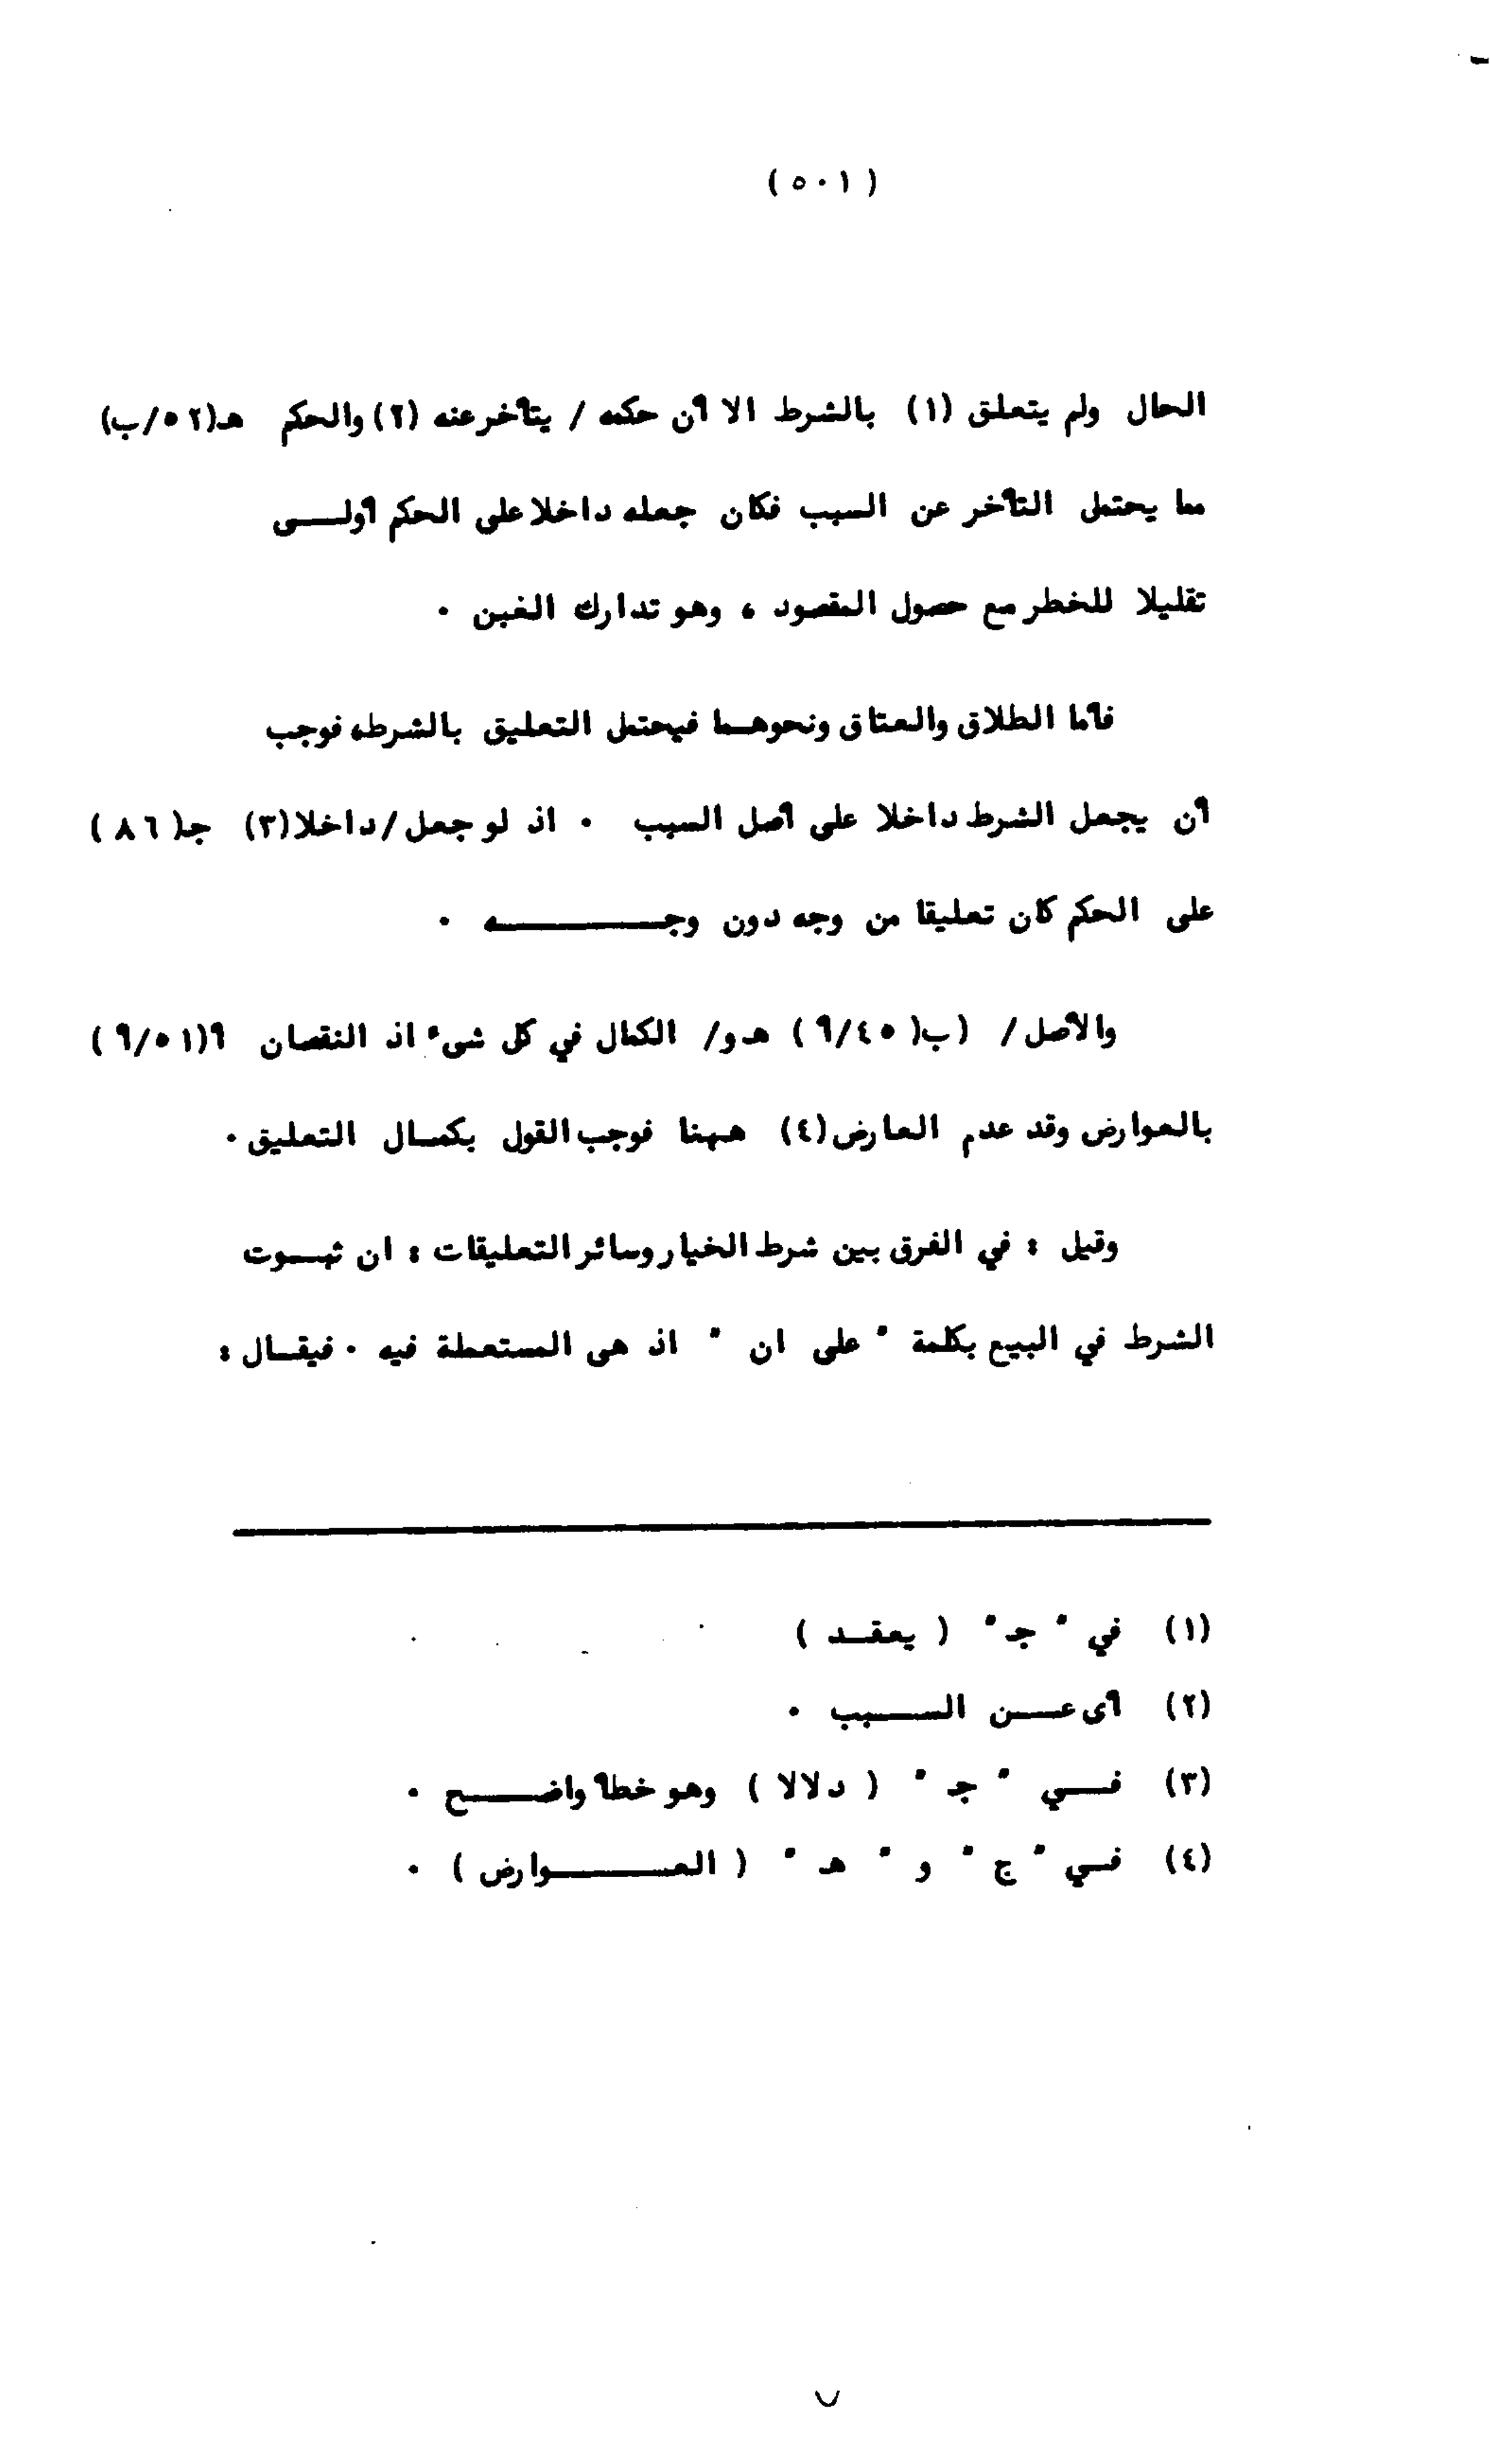 ( ٥٠١ )
الحال ولم يتعلق (١) بالشرط الا أن حكمه / يتأخر عنه (٢) والحكم هـ(٥٢/ب)
مما يحتمل التأخر عن السبب فكان جعله داخلا على الحكم أولــى
تقليلا للخطر مع حصول المقصود ، وهو تدارك الغبن .
فأما الطلاق والعتاق ونحوهــما فيحتمل التعليق بالشرط، فوجب
أن يجعل الشرط داخلا على أصل السبب . اذ لو جعل/داخلا(٣) جـ(٨٦)
على الحكم كان تعليقا من وجه دون وجــــــه .
والأصل/ (ب(٤٥/أ) هـو/ الكمال في كل شىء اذ النقصان أ(٥١/أ)
بالعوارض وقد عدم العارض(٤) ههنا فوجب القول بكمــال التعليق .
وقيل : في الفرق بين شرط الخيار وسائر التعليقات : ان ثبــوت
الشرط في البيع بكلمة " على ان " اذ هى المستعملة فيه . فيقــال :
(١) في " جـ " ( يعقــد )
(٢) أى عــن الســـبب .
(٣) فــي " جـ " ( دلالا ) وهو خطأ واضـــح .
(٤) فــي " ج " و " هـ " ( العـــــوارض ) .